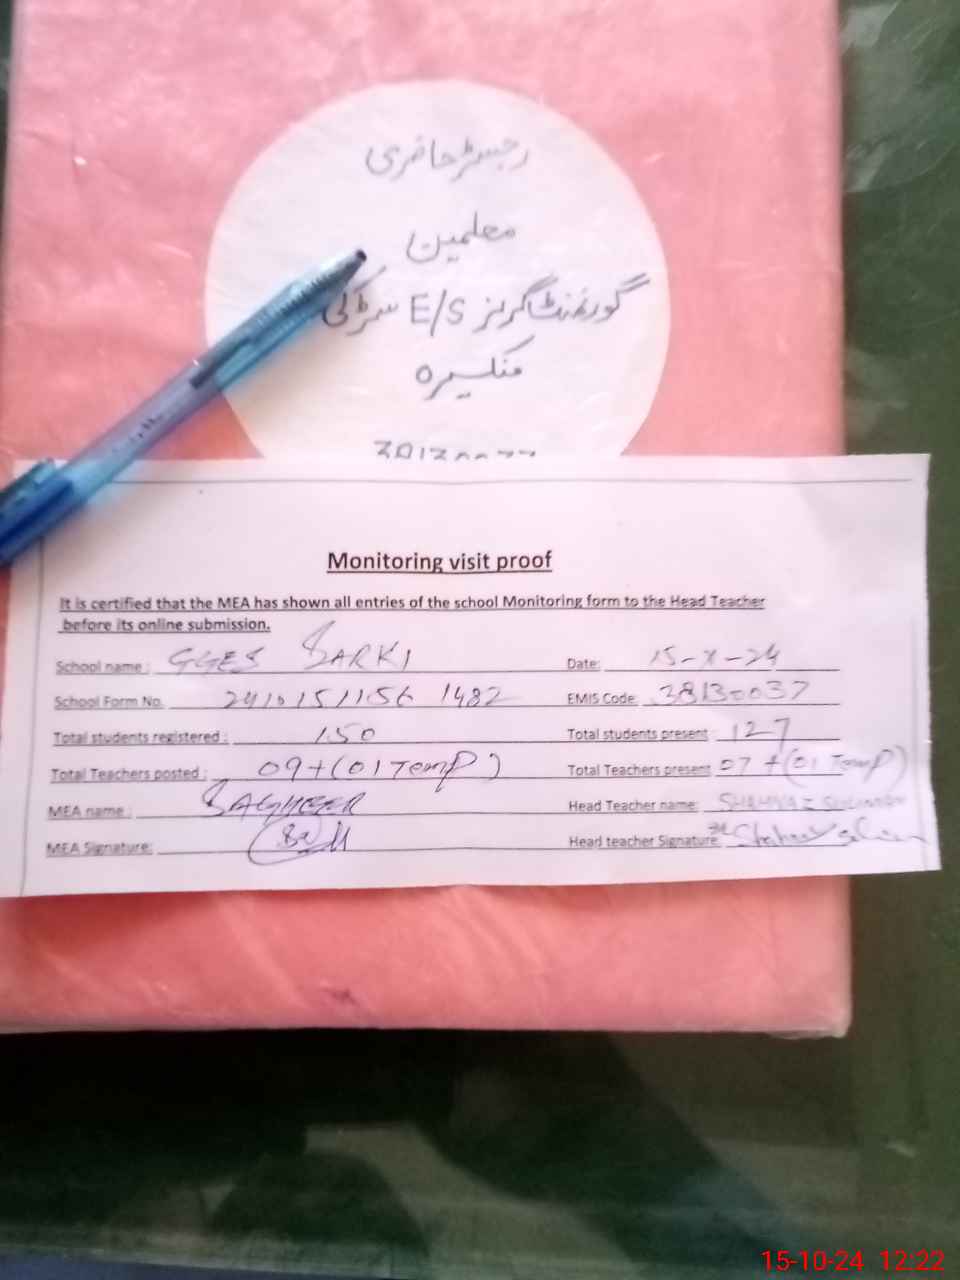 رجسٹر حاضری
معلمین
گورنمنٹ گرلز E/S سڑکی
منکیرہ
Monitoring visit proof
It is certified that the MEA has shown all entries of the school Monitoring form to the Head Teacher
before its online submission.
School name: GGES SARKI Date: 15-X-24
School Form No. 2410151156 1482 EMIS Code 38130037
Total students registered: 150 Total students present: 127
Total Teachers posted: 09+(01 Temp) Total Teachers present 07+(01 Temp)
MEA name: SAGHEER Head Teacher name: SHAHNAZ
MEA Signature: Head teacher Signature:
15-10-24 12:22